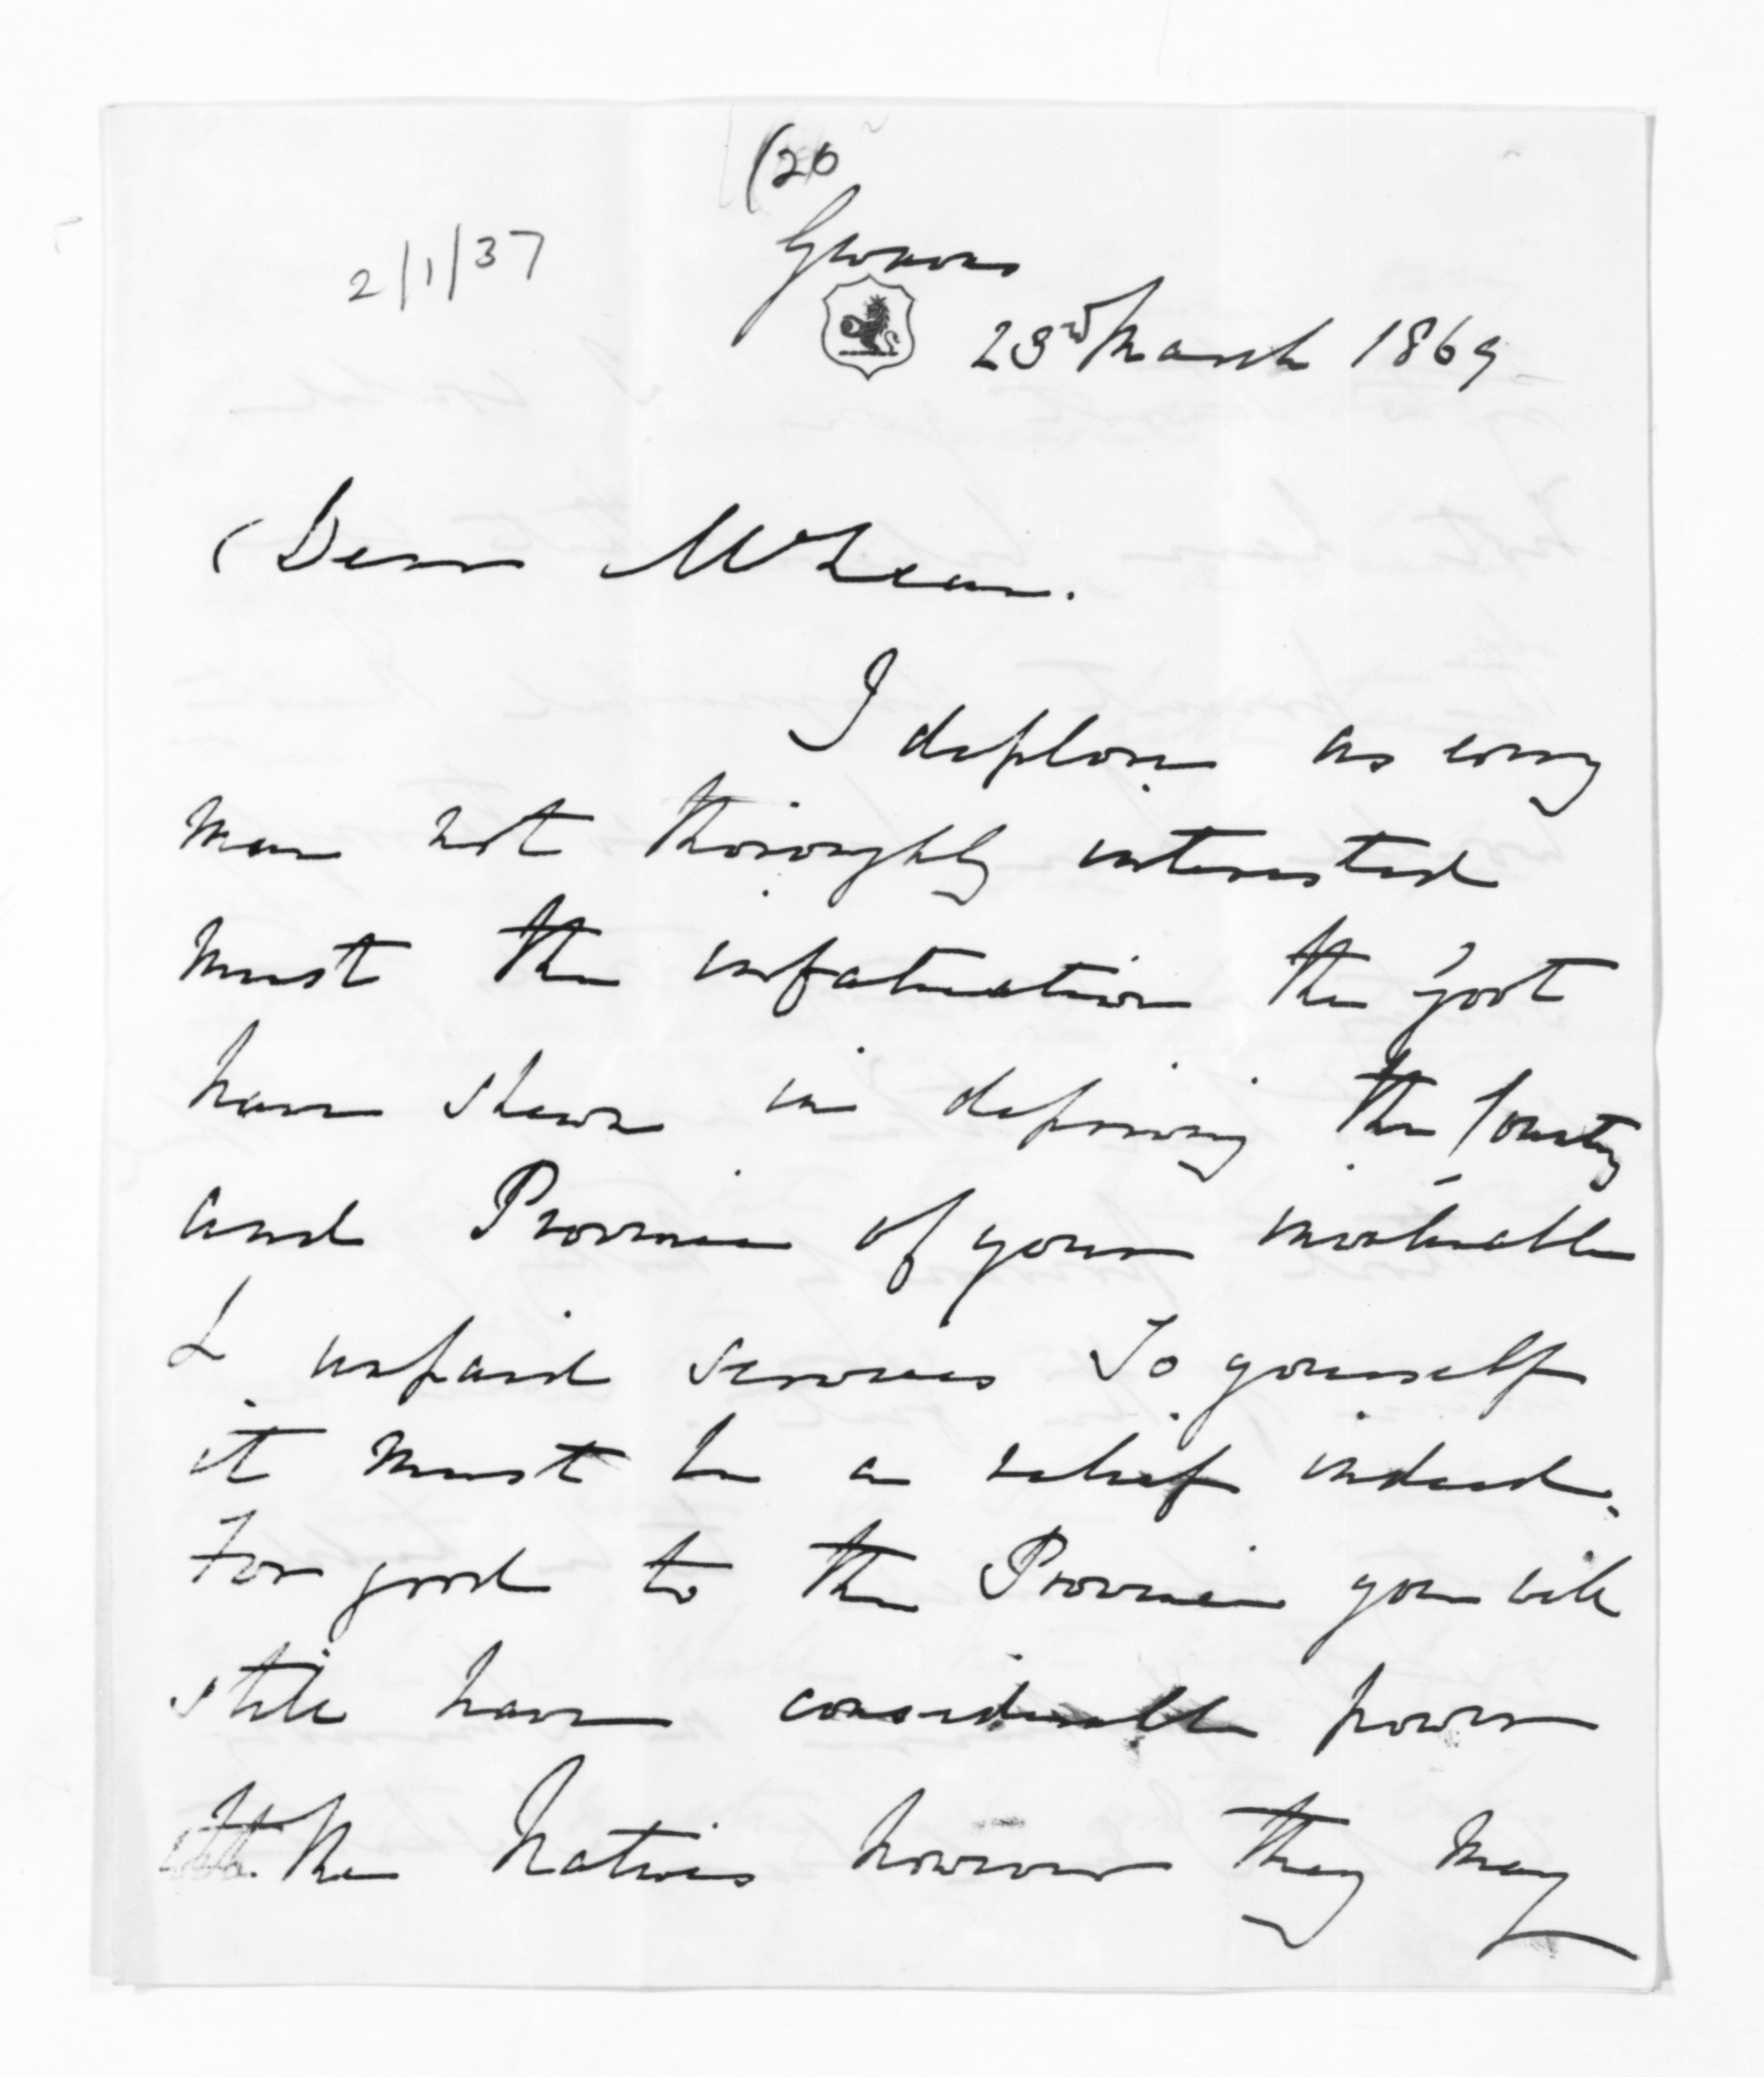 (20
2/1/37
23rd March 1869
Dear McLean.
I deplore as every
man not thoroughly interested
must the infatuation the Govt
have shewn in depriving the County
and Province of your invaluable
& unpaid services To yourself
it must be a relief indeed.
For good to the Province you will
still have considerable power
the Natives however they may